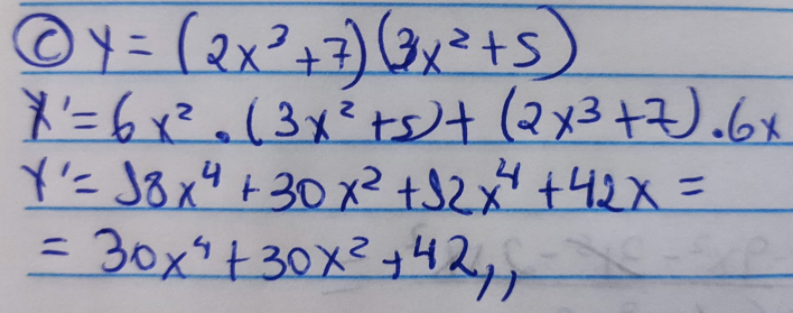 ⓒ y = (2x³+7)(3x²+5)
y'= 6x² . (3x²+5)+ (2x³+7).6x
y'= 18x⁴ + 30x² +12x⁴ +42x =
= 30x⁴+30x²+42,,